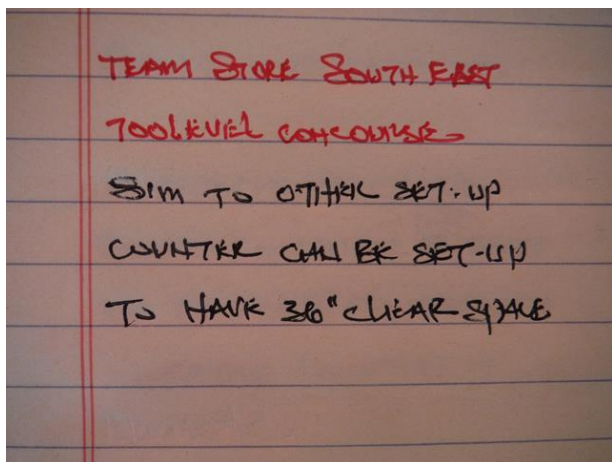 TEAM STORE SOUTH EAST
700 LEVEL CONCOURSE
SIM TO OTHER SET-UP
COUNTER CAN BE SET-UP
TO HAVE 36" CLEAR SPACE